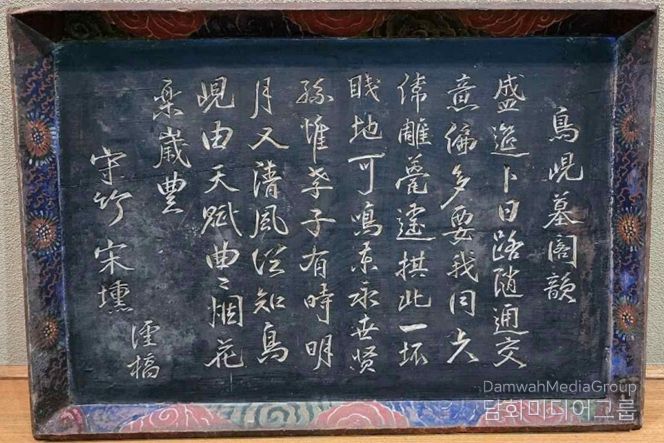 鳥峴墓閣韻
盛筵卜日路隨通交
意偏多要我同
偉雕甍遽拱此一抔
賤地可鳴東永世賢
孫惟孝子有時明
月又淸風從知鳥
峴由天賦曲〻烟花
樂歲豊
守竹宋壎
謹稿
DamwahMediaGroup
담화미디어그룹